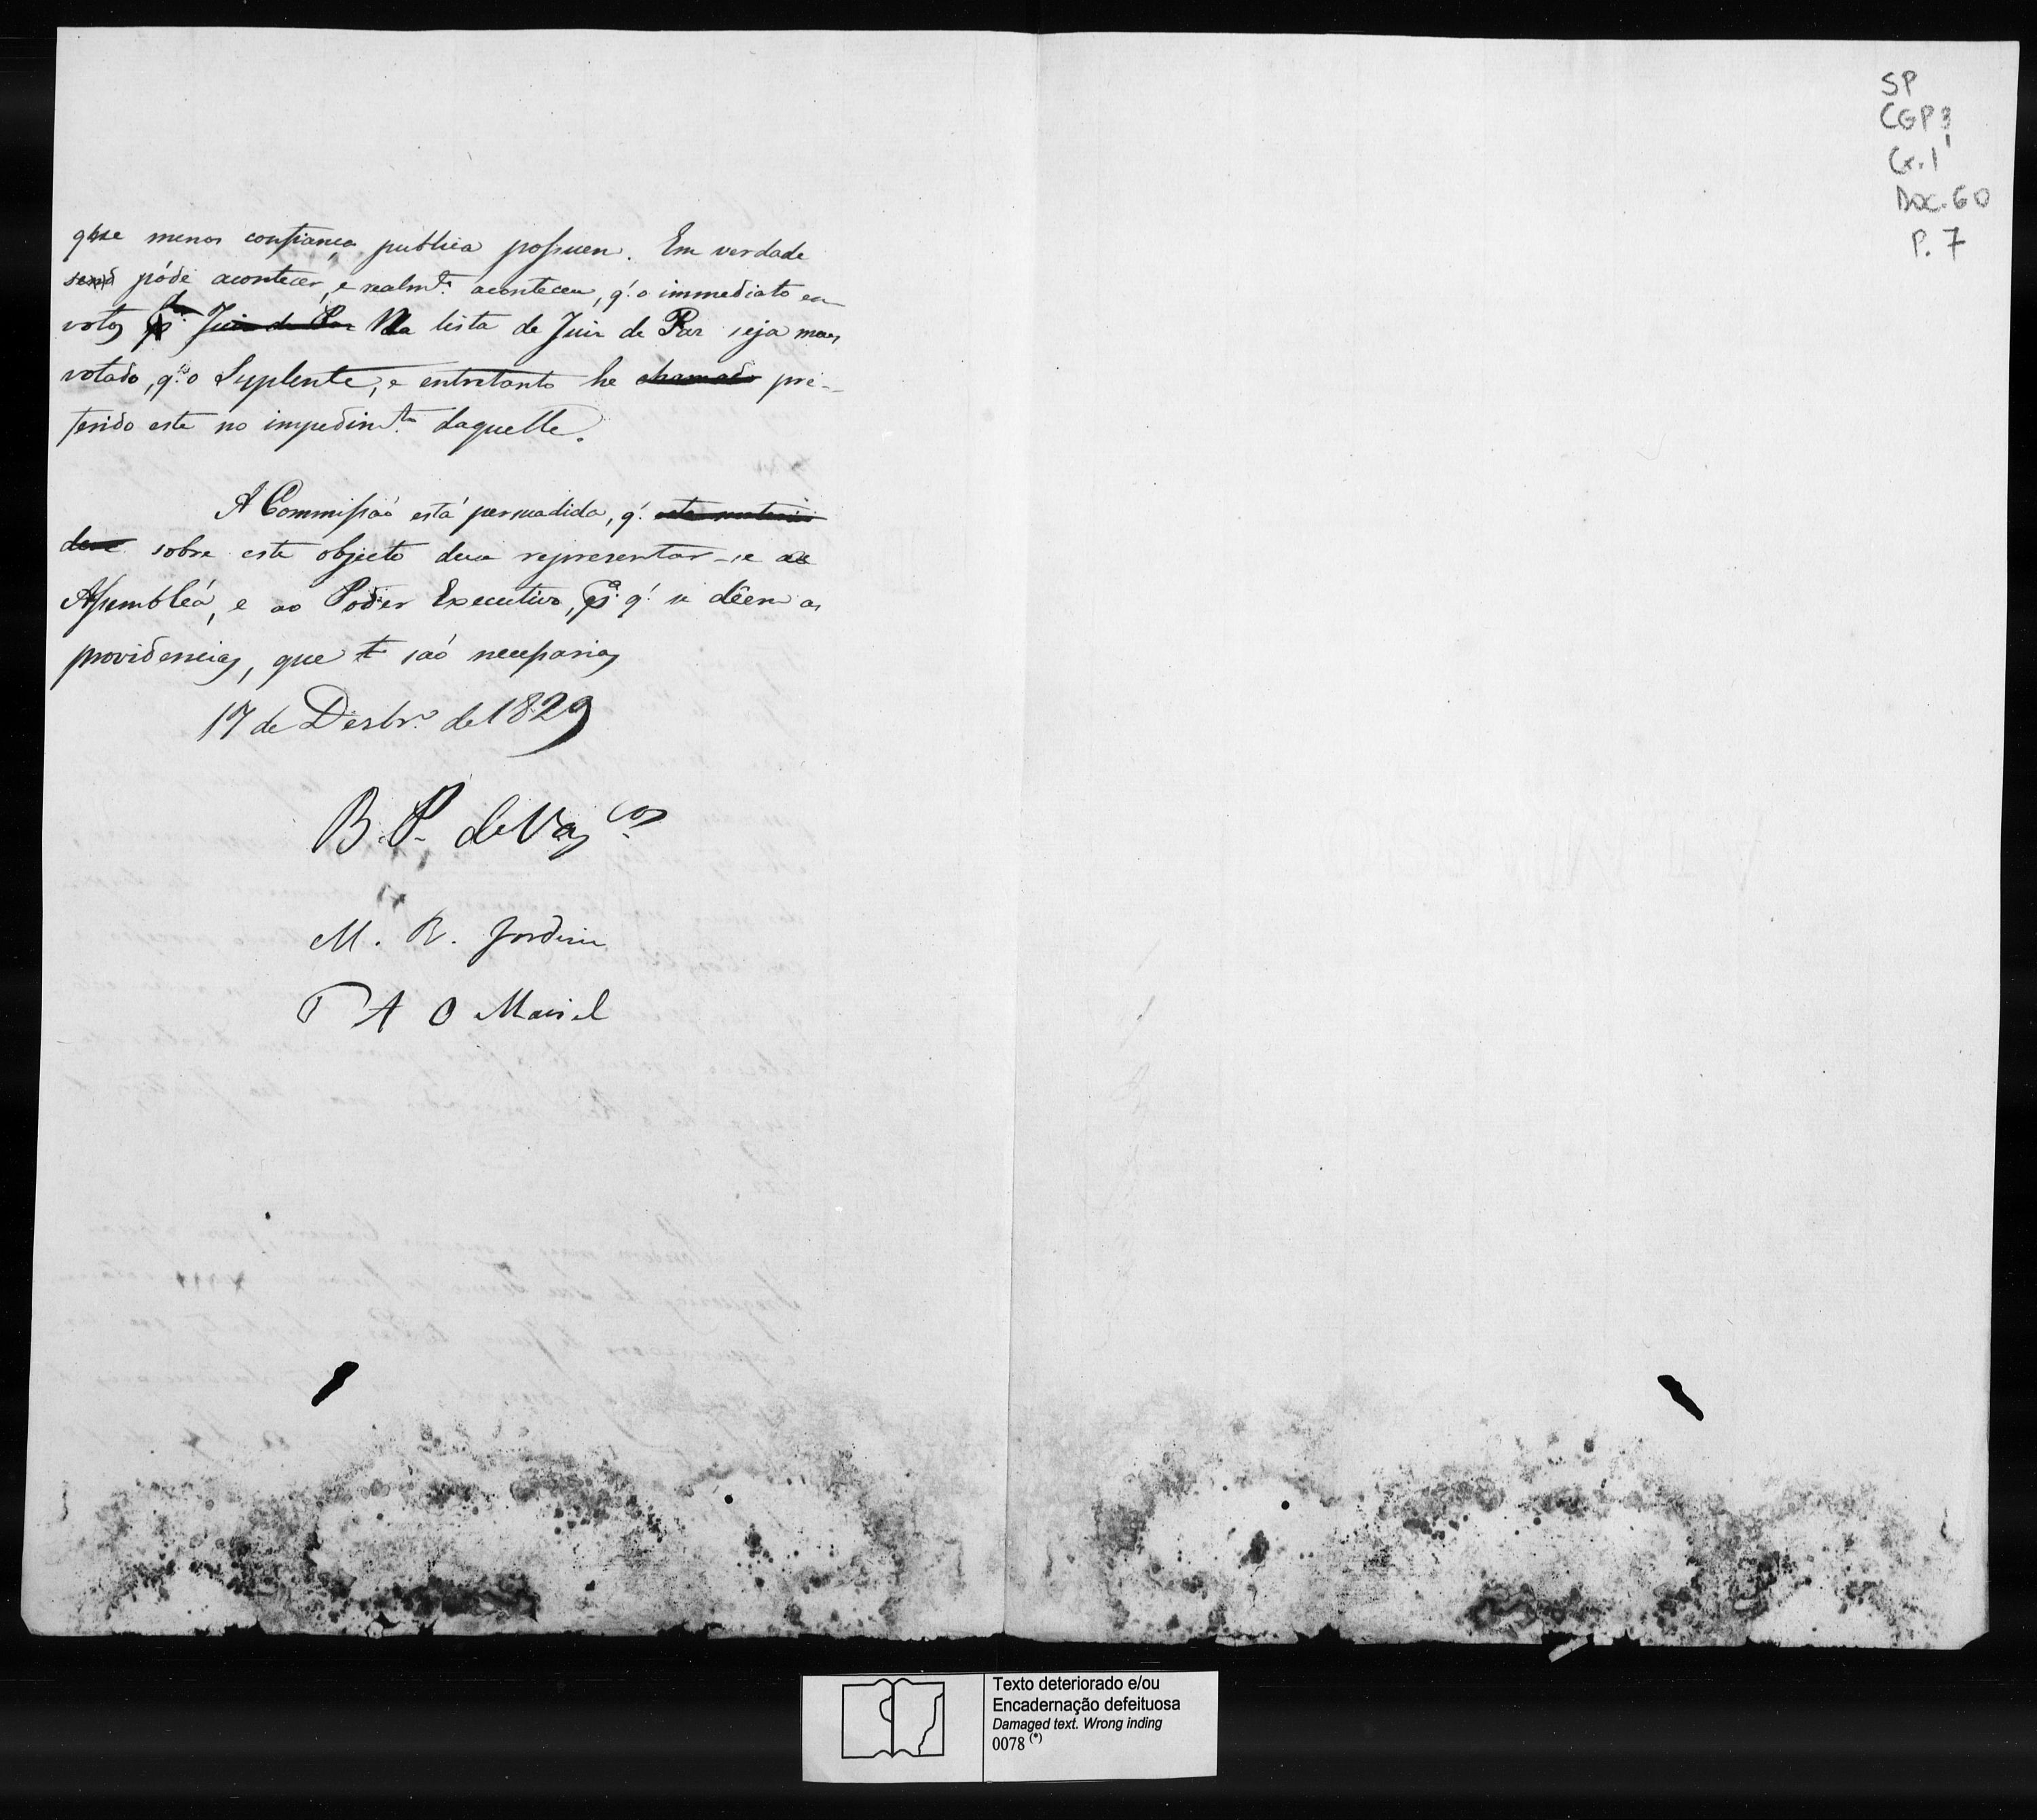 que menos confiança publica possuem. Em verdade
póde acontecer, e realm.te aconteceu, q.' o immediato em
votos p.a Juiz de Paz Na lista de Juiz de Paz seja mais
votado, q.' o Supplente, e entretanto he chamado pre-
ferido este no impedim.to daquelle.
A Commissaõ está persuadida, q.' esta materia
deve sobre este objecto deva representar-se a
Assembléa, e ao Poder Executivo, p.a q.' se dêem as
providencias, que saõ necessarias
17 de Dezbr.o de 1829
B. P. de Vas.cos
M. R. Jardim
T A O Maciel
SP
CGP3
Cx.1
Doc. 60
P. 7
Texto deteriorado e/ou
Encadernação defeituosa
Damaged text. Wrong inding
0078 (*)